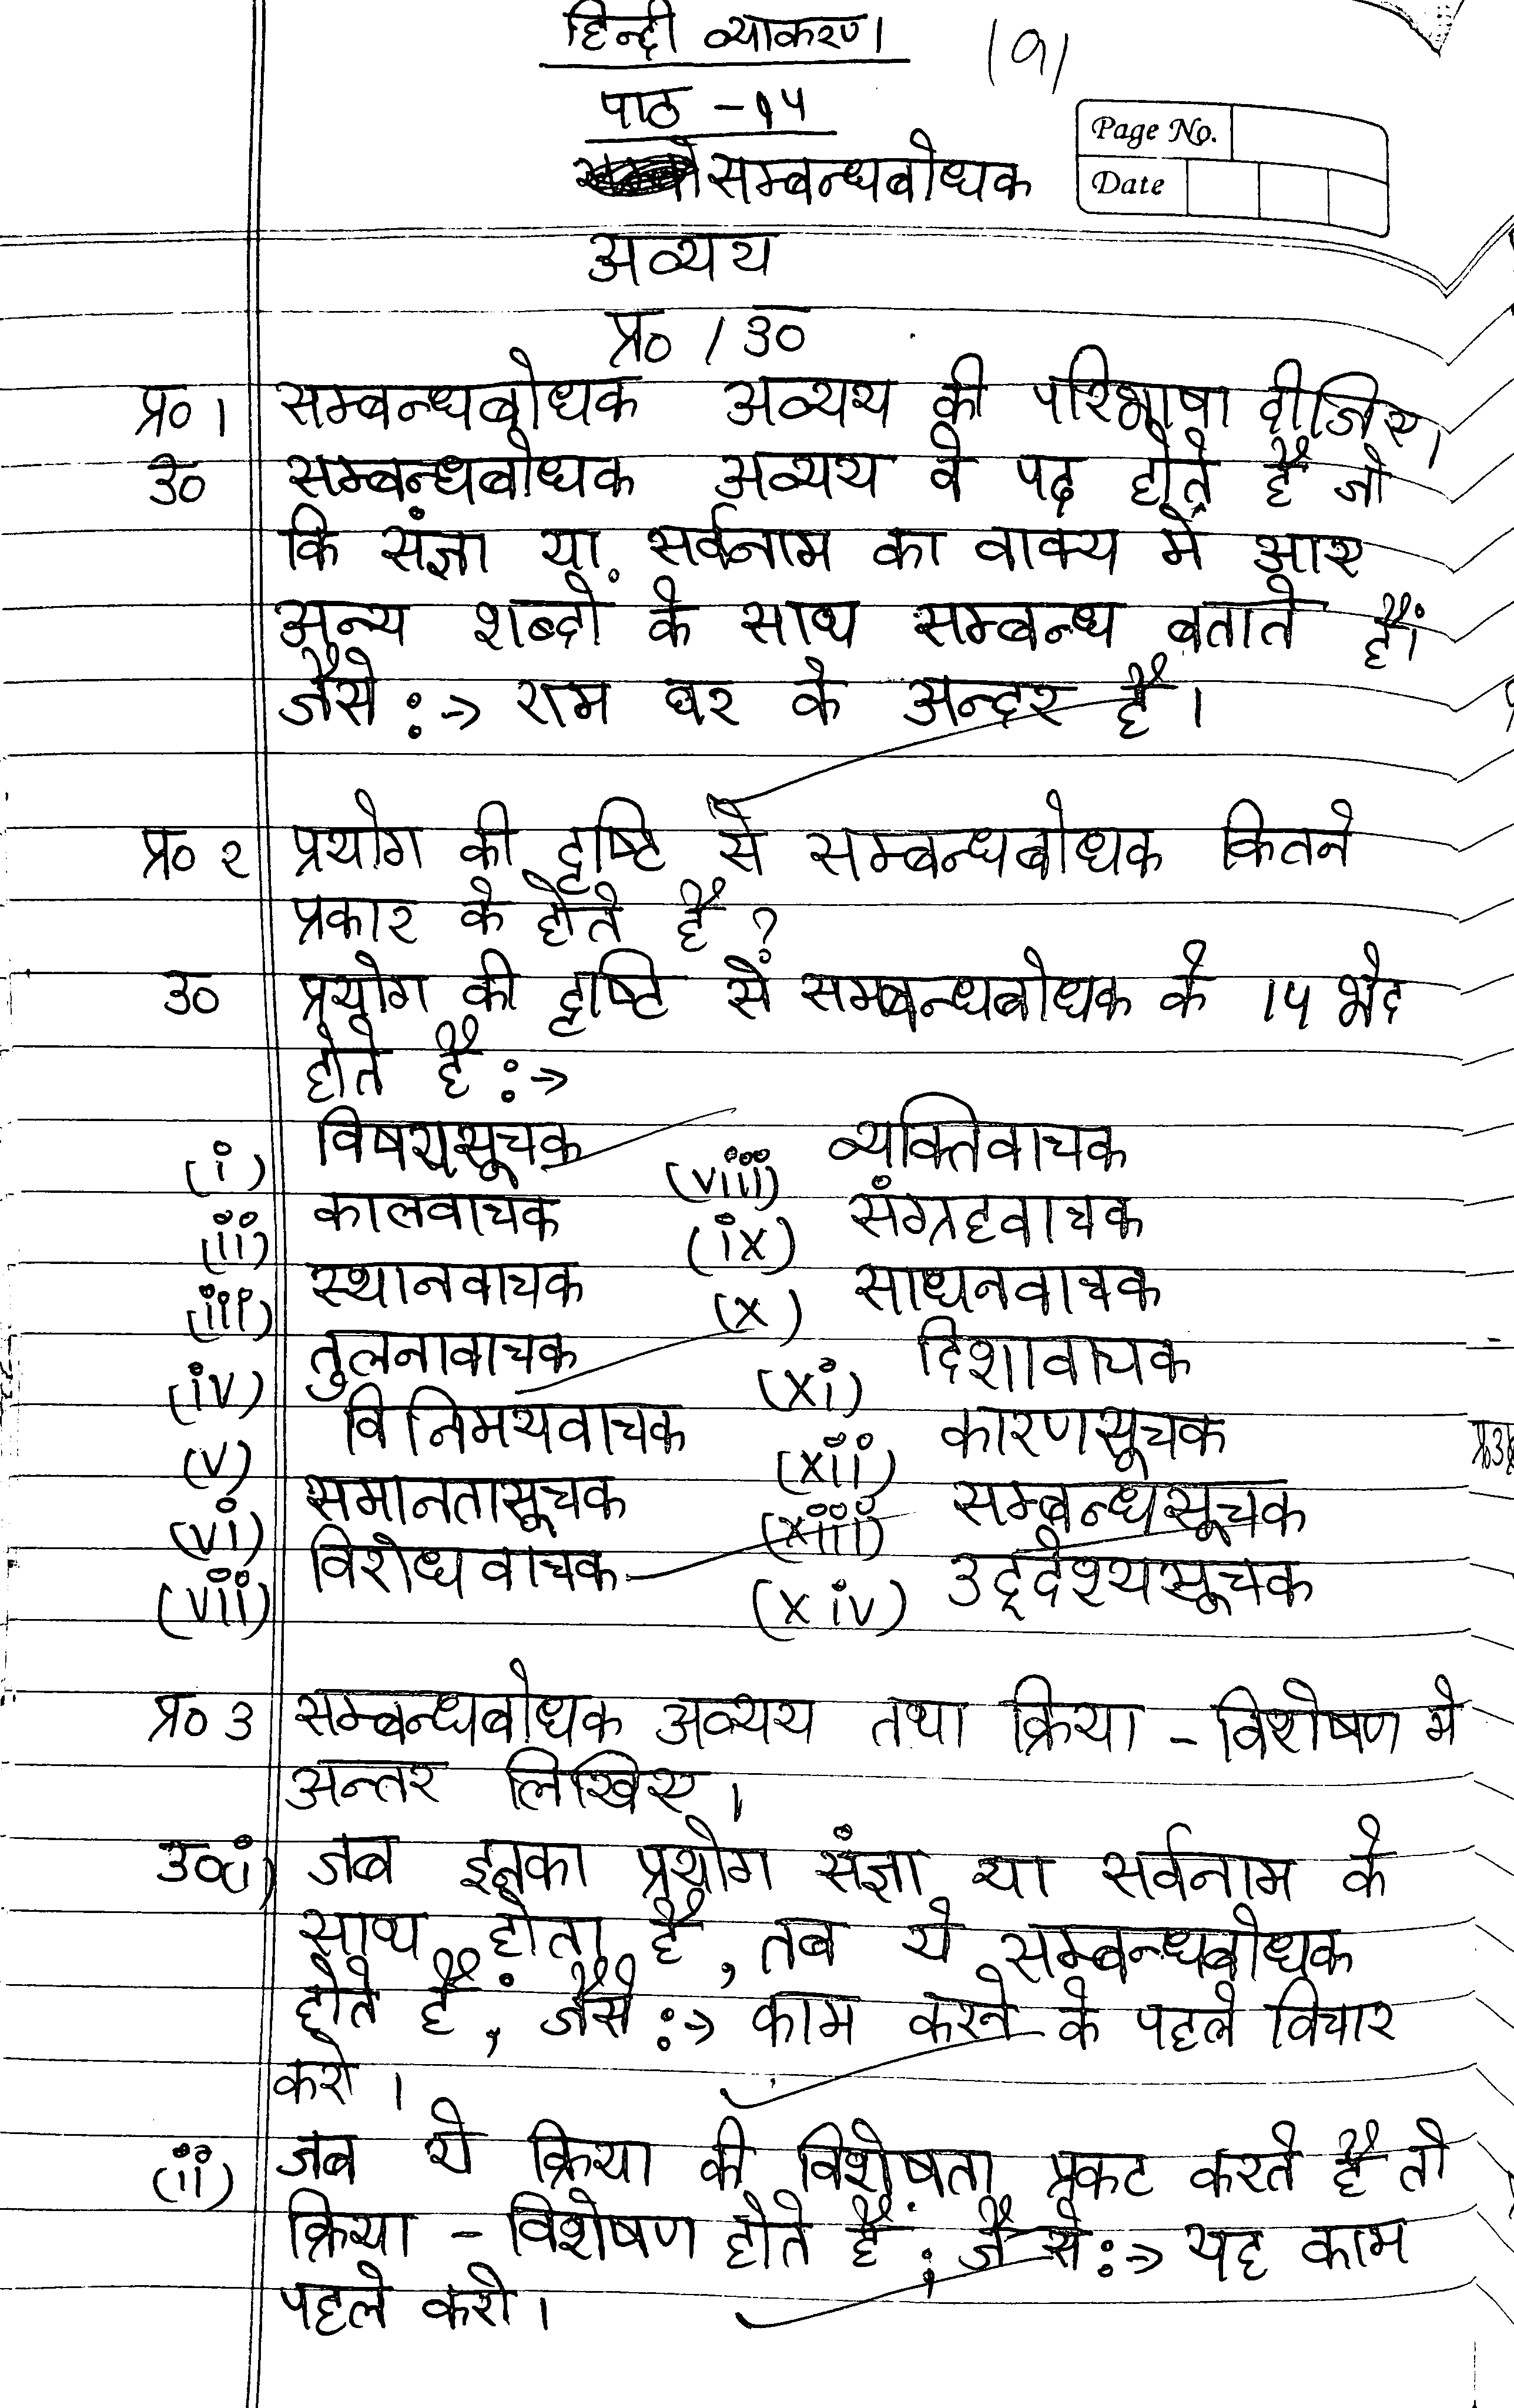 हिन्दी व्याकरण
(9)
पाठ -१५
Page No.
Date
सम्बन्धबोधक
अव्यय
प्र० / उ०
प्र० । सम्बन्धबोधक अव्यय की परिभाषा दीजिए।
उ० सम्बन्धबोधक अव्यय वे पद होते हैं जो
कि संज्ञा या सर्वनाम का वाक्य में आए
अन्य शब्दों के साथ सम्बन्ध बताते हैं।
जैसे :-> राम घर के अन्दर है।
प्र० २ प्रयोग की दृष्टि से सम्बन्धबोधक कितने
प्रकार के होते हैं ?
उ० प्रयोग की दृष्टि से सम्बन्धबोधक के 14 भेद
होते हैं :->
(i) विषयसूचक (viii) व्यक्तिवाचक
(ii) कालवाचक (ix) संग्रहवाचक
(iii) स्थानवाचक (x) साधनवाचक
(iv) तुलनावाचक (xi) दिशावाचक
(v) विनिमयवाचक (xii) कारणसूचक
(vi) समानतासूचक (xiii) सम्बन्धसूचक
(vii) विरोधवाचक (xiv) उद्देश्यसूचक
प्र० ३ सम्बन्धबोधक अव्यय तथा क्रिया - विशेषण में
अन्तर लिखिए।
उ० (i) जब इनका प्रयोग संज्ञा या सर्वनाम के
साथ होता है, तब ये सम्बन्धबोधक
होते हैं, जैसे :-> काम करने के पहले विचार
करो।
(ii) जब ये क्रिया की विशेषता प्रकट करते हैं तो
क्रिया - विशेषण होते हैं; जैसे :-> यह काम
पहले करो।